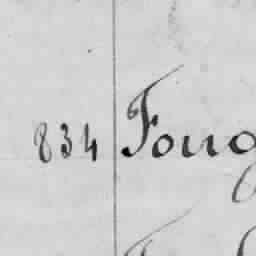 834 Foug